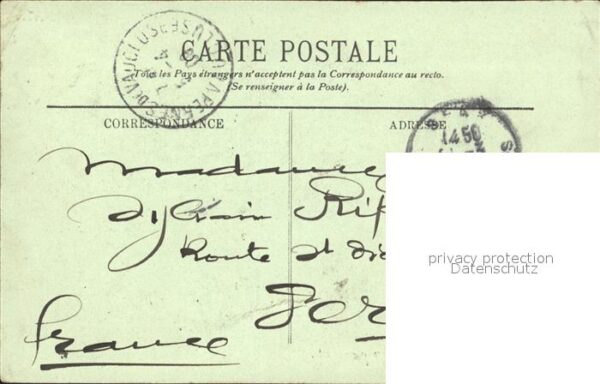 CARTE POSTALE
Tous les Pays étrangers n'acceptent pas la Correspondance au recto.
(Se renseigner à la Poste).
CORRESPONDANCE
ADRESSE
14 50
Madame
Sylvain Rip
Route St Dié
France
privacy protection
Datenschutz